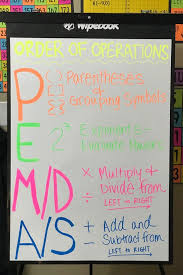 wipebook
ORDER OF OPERATIONS
P () Parentheses
[] or
{} Grouping Symbols
E 2³ Exponents
M/D × Multiply &
÷ Divide from
LEFT to RIGHT
A/S + Add and
- Subtract from
LEFT to RIGHT